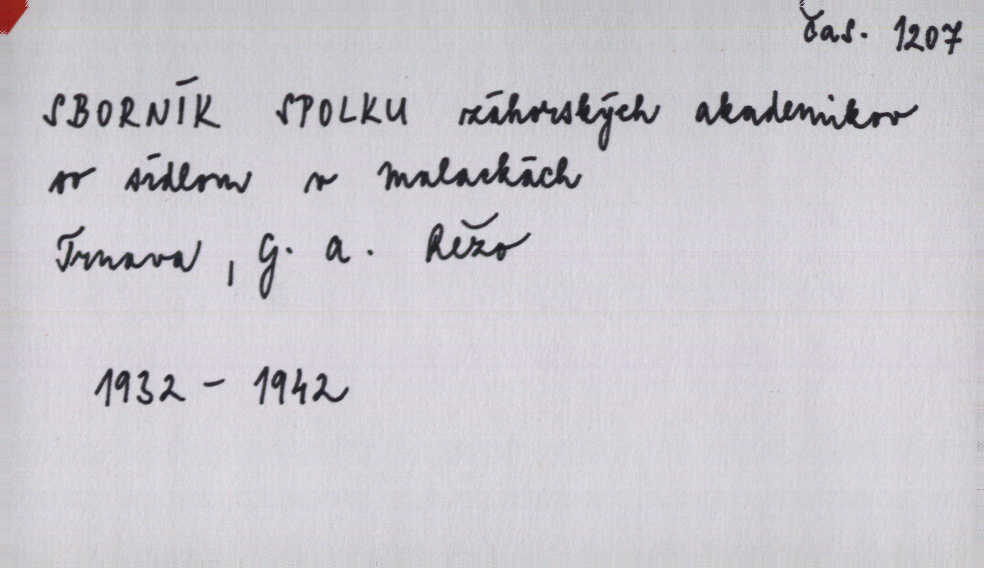 Čas. 1207
SBORNÍK SPOLKU záhorských akademikov
so sídlom v Malackách
Trnava, G. A. Režo
1932 - 1942